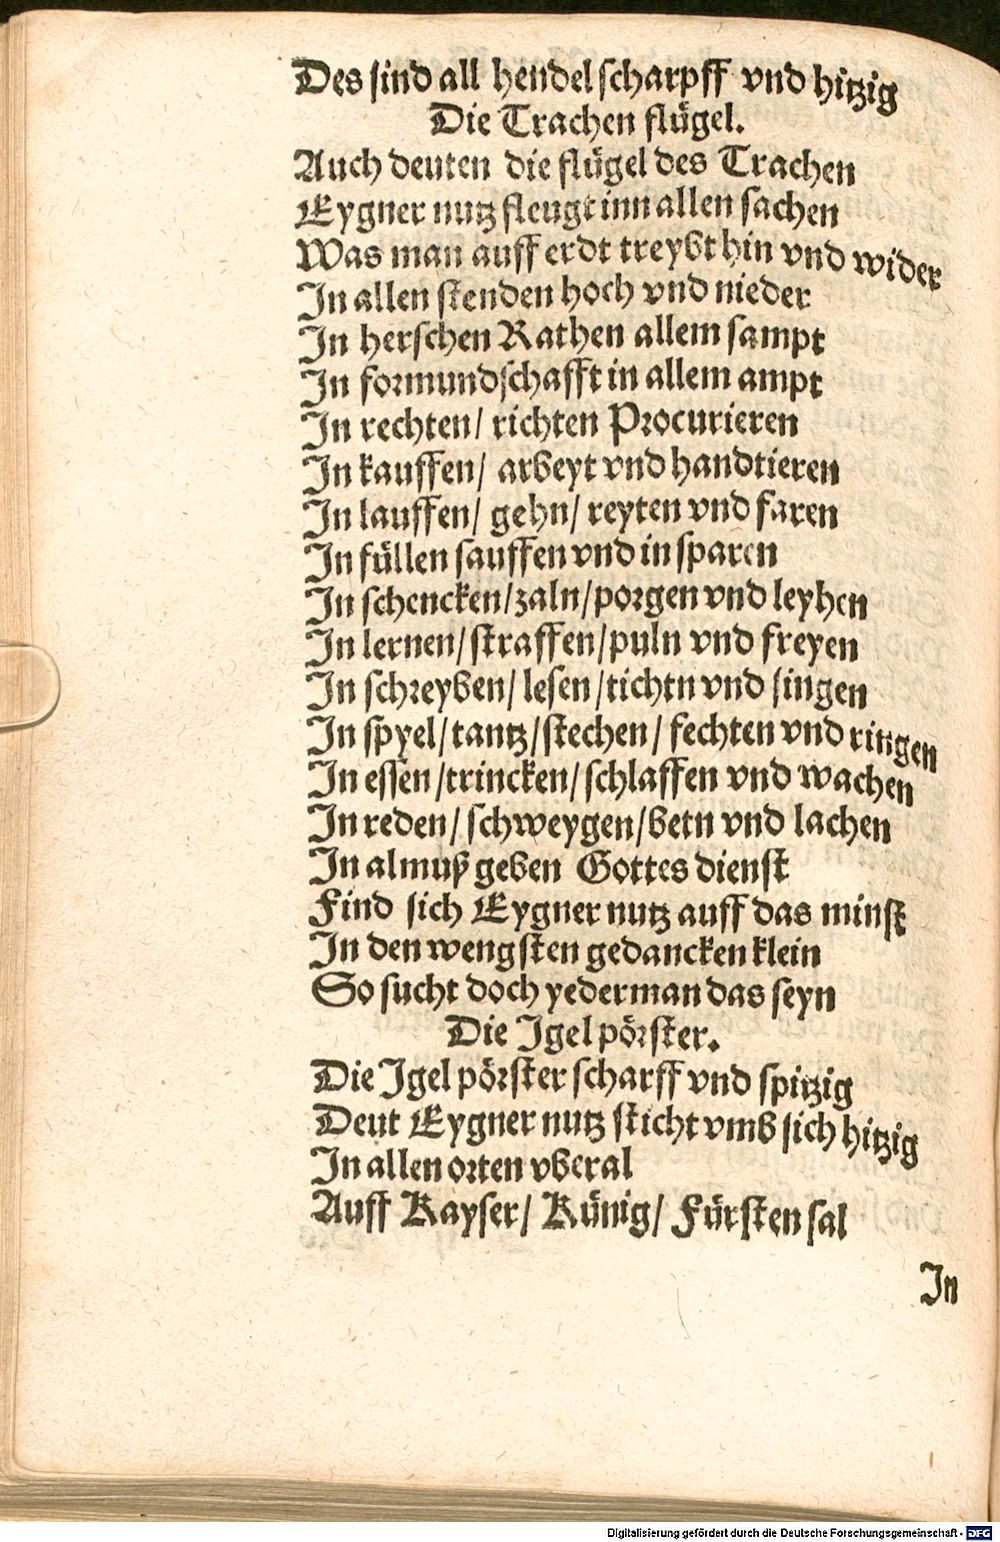 Des sind all hendel scharpff vnd hitzig
Die Trachen flügel.
Auch deuten die flügel des Trachen
Eygner nutz fleugt inn allen sachen
Was man auff erdt treybt hin vnd wider
In allen stenden hoch vnd nieder
In herschen Rathen allem sampt
In formundschafft in allem ampt
In rechten/ richten Procurieren
In kauffen/ arbeyt vnd handtieren
In lauffen/ gehn/ reyten vnd faren
In füllen sauffen vnd in sparen
In schencken/zaln/porgen vnd leyhen
In lernen/straffen/puln vnd freyen
In schreyben/ lesen/tichtn vnd singen
In spyel/tantz/stechen/ fechten vnd ringen
In essen/trincken/schlaffen vnd wachen
In reden/ schweygen/betn vnd lachen
In almuß geben Gottes dienst
Find sich Eygner nutz auff das minst
In den wengsten gedancken klein
So sucht doch yederman das seyn
Die Igel pörster.
Die Igel pörster scharff vnd spitzig
Deut Eygner nutz sticht vmb sich hitzig
In allen orten vberal
Auff Kayser/ Künig/ Fürsten sal
In
Digitalisierung gefördert durch die Deutsche Forschungsgemeinschaft - DFG